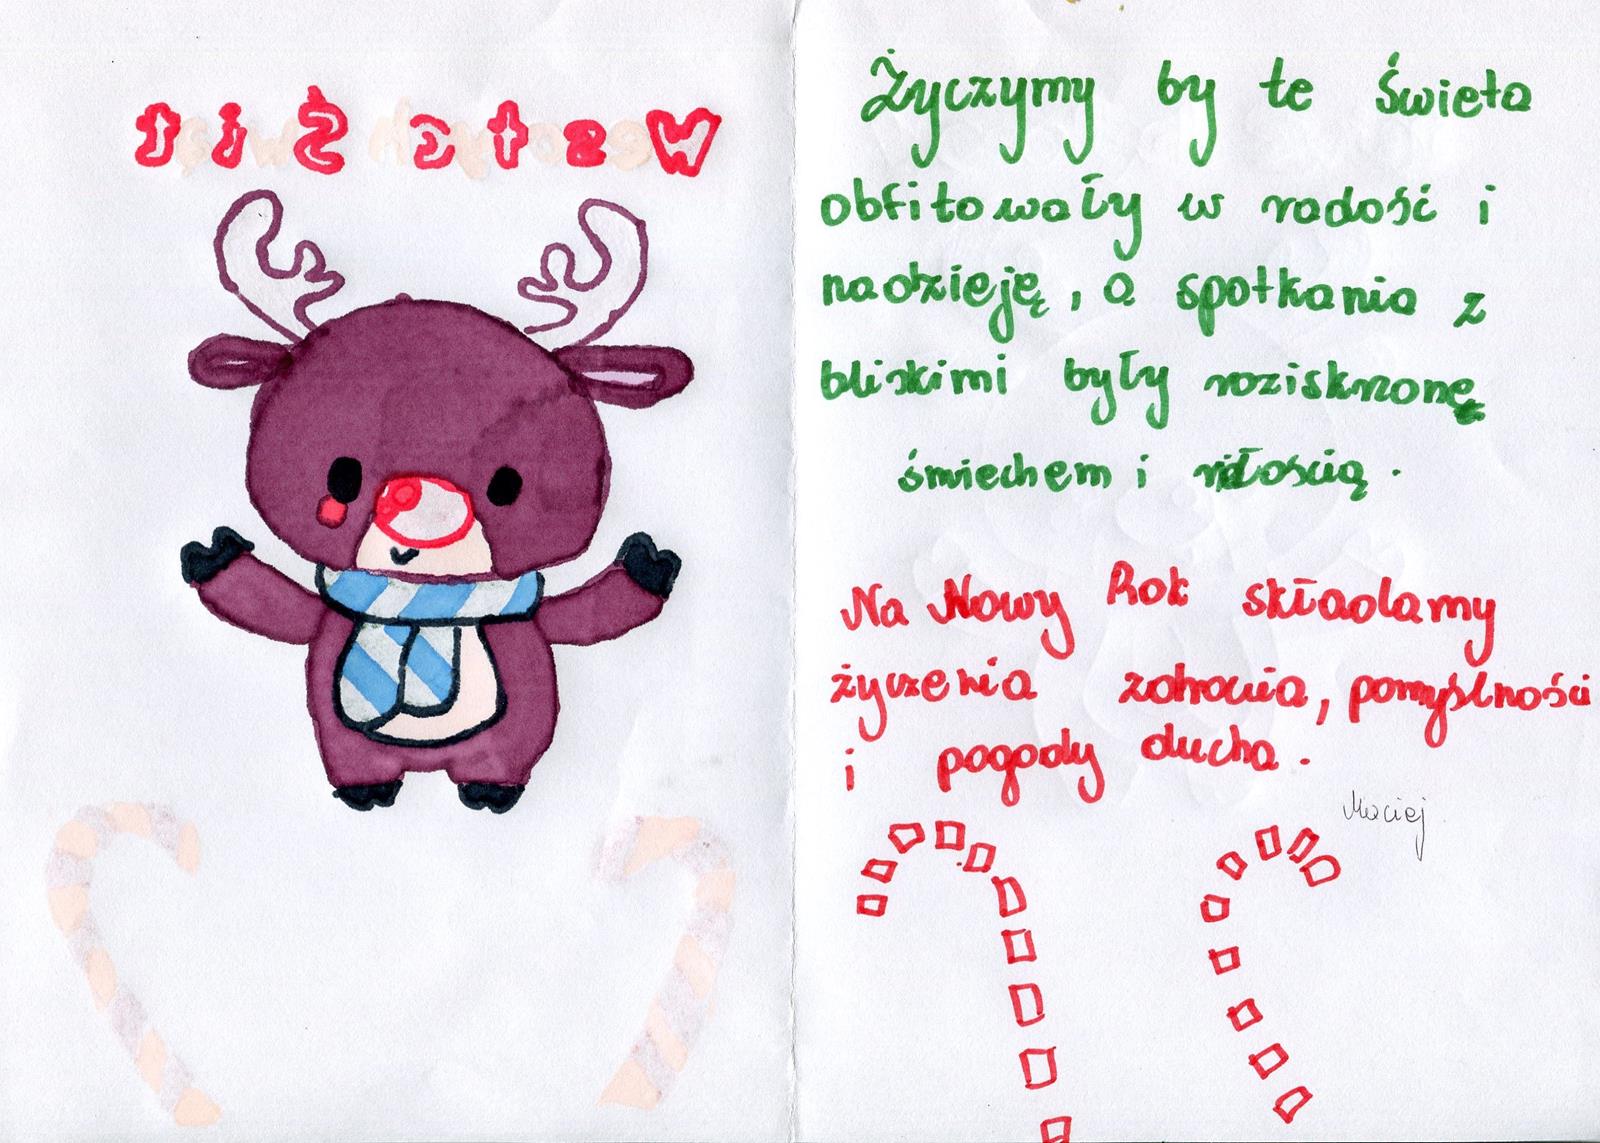 Życzymy by te Święta
obfitowały w radość i
nadzieję, a spotkania z
bliskimi były roziskrzonę
śmiechem i miłością.
Na Nowy Rok składamy
życzenia zdrowia, pomyślności
i pogody ducha.
Maciej